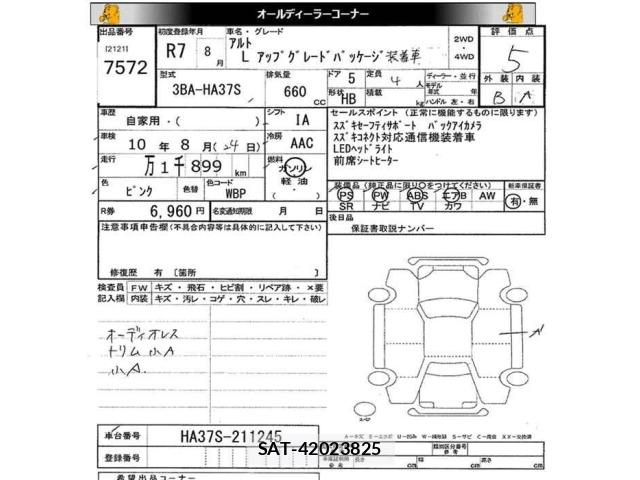 オールディーラーコーナー
出品番号
I21211
7572
初度登録年月
R7 8月
車名・グレード
アルト
L アップグレードパッケージ装着車
2WD
・
4WD
評価点
5
型式
3BA-HA37S
排気量
660 cc
ドア 5
形状 HB
定員 4 人
積載 kg
ディーラー・並行
モデル年式 年
ハンドル 左・右
外装 内装
B A
車歴
自家用・( )
シフト
IA
車検
10 年 8 月 (24 日)
冷房
AAC
走行
万 1 千 899 km
燃料
ガソリン
軽油
色
ピンク
色替
色コード
WBP
R券
6,960 円
名変通知期限 月 日
セールスポイント (正常に機能するものに限ります)
スズキセーフティサポート バックアイカメラ
スズキコネクト対応通信機装着車
LEDヘッドライト
前席シートヒーター
装備品 (純正品に限り〇をつけてください)
PS PW ABS エアB AW
SR ナビ TV カワ
新車保証書
有・無
後日品
保証書取説ナンバー
注意事項申告欄(不具合内容等は具体的に記入して下さい)
修復歴 有 〔箇所 〕
検査員記入欄
FW キズ・飛石・ヒビ割・リペア跡・×要
内装 キズ・汚レ・コゲ・穴・スレ・キレ・破レ
オーディオレス
トリム小A
小A.
A
車台番号
HA37S-211245
登録番号
SAT-42023825
希望出品コーナー